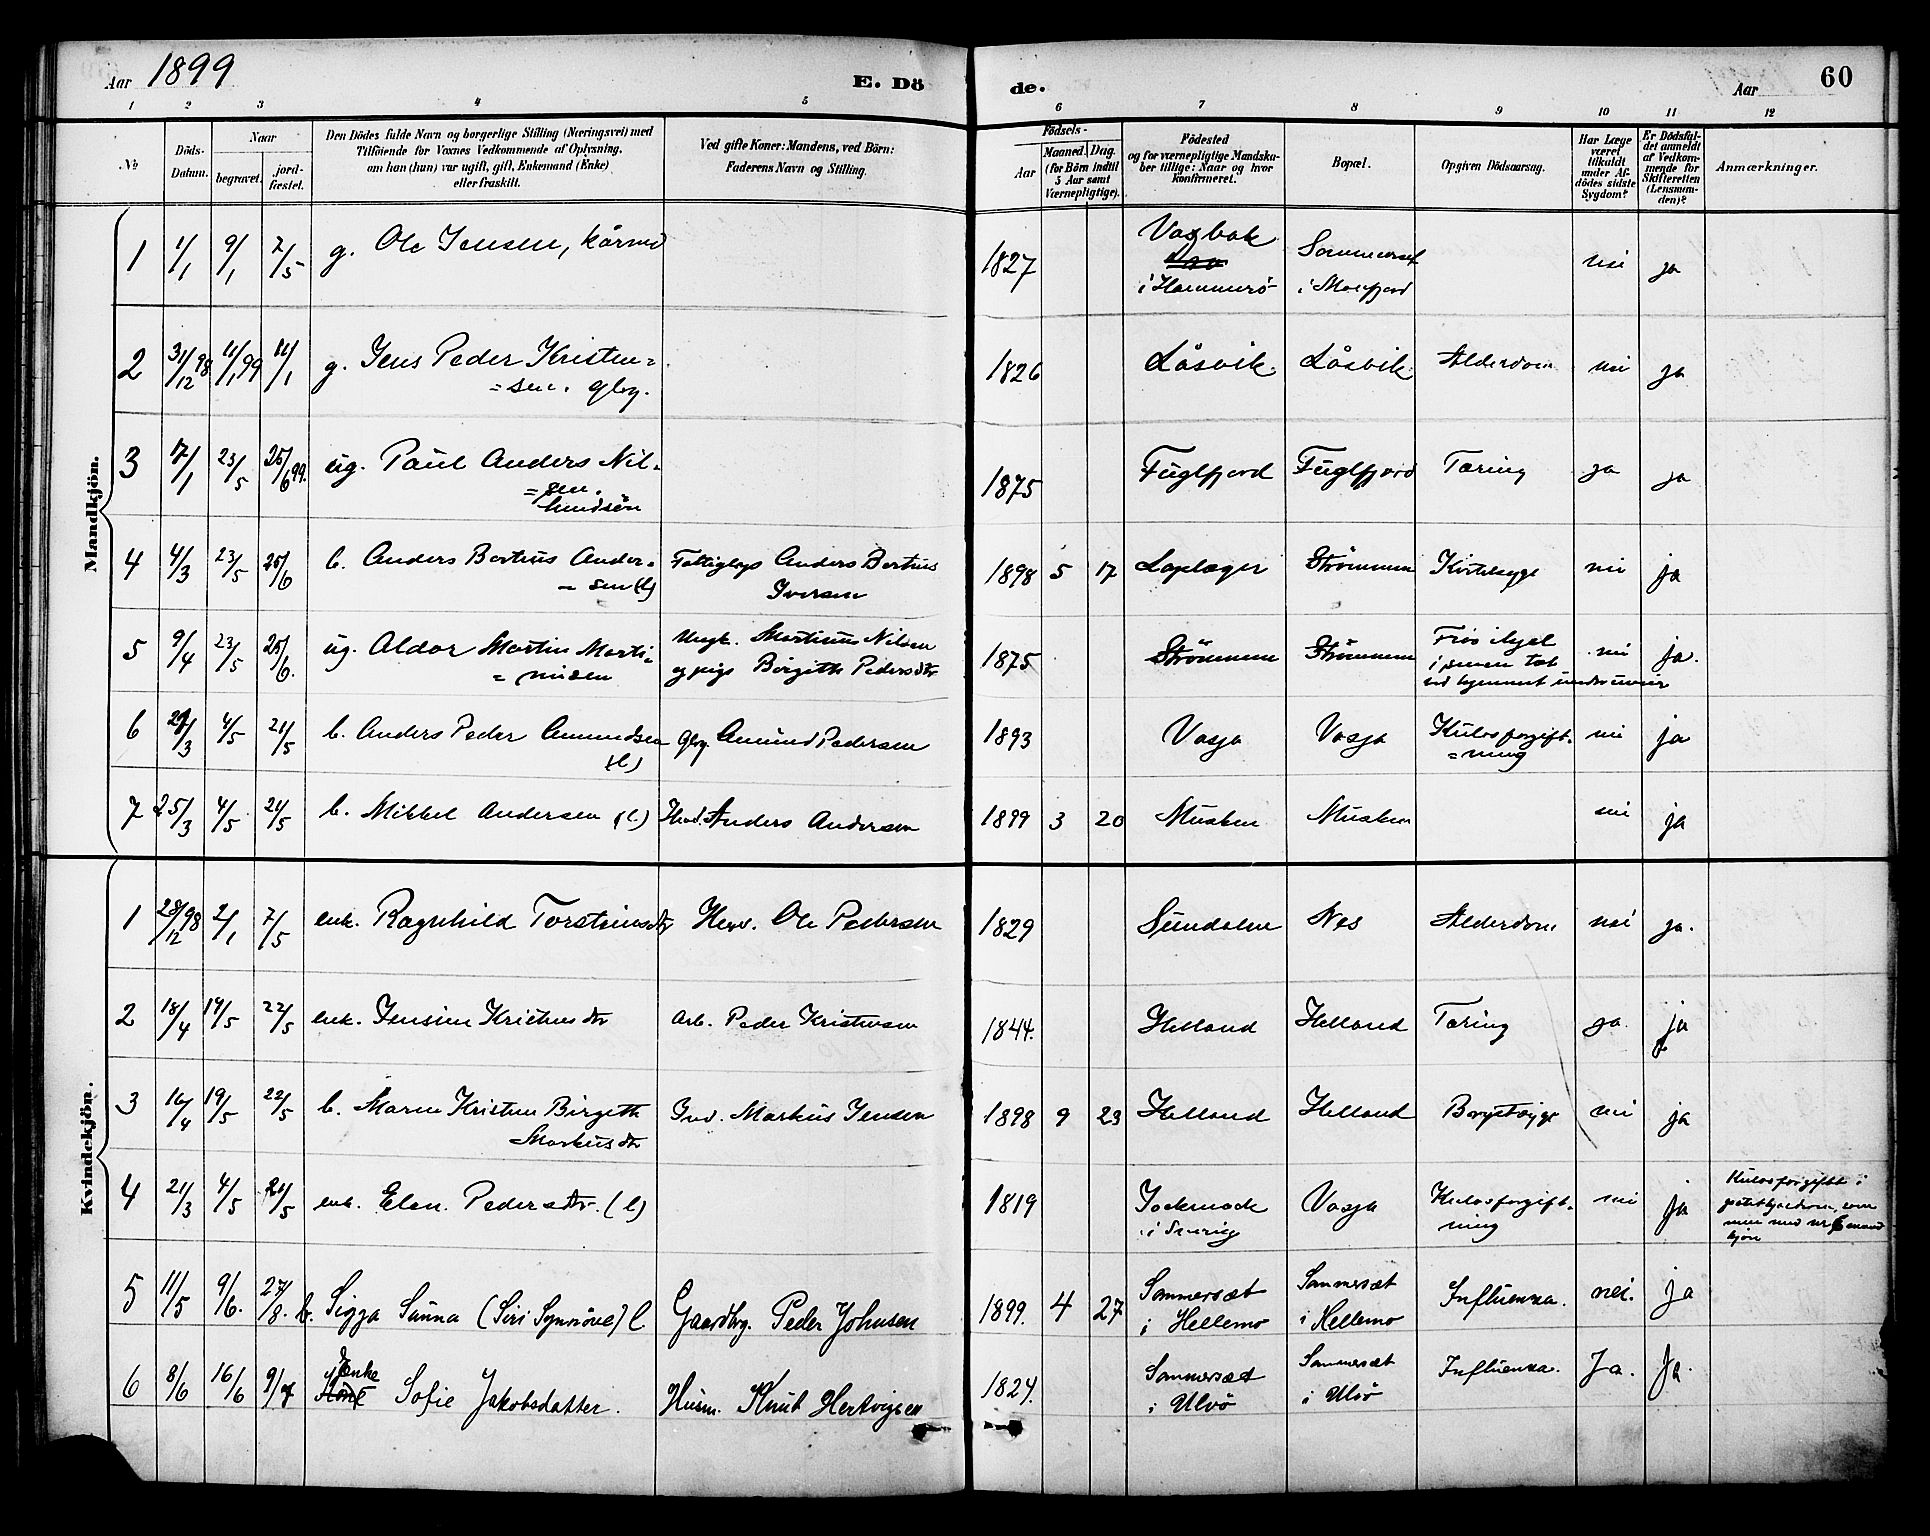 Aar 1899
E. Dö
de.
Aar
60
1 2 3 4 5 6 7 8 9 10 11 12
No
Döds-Datum.
Naar
begravet.
jord-fæstet.
Den Dödes fulde Navn og borgerlige Stilling (Næringsvei) med
Tilföiende for Voxnes Vedkommende af Oplysning,
om han (hun) var ugift, gift, Enkemand (Enke)
eller fraskilt.
Ved gifte Koner: Mandens, ved Börn:
Faderens Navn og Stilling.
Födsels-
Aar
Maaned. Dag.
(for Börn indtil
5 Aar samt
Værnepligtige).
Födested
og for værnepligtige Mandska-
ber tillige: Naar og hvor
konfirmeret.
Bopæl.
Opgiven Dödsaarsag.
Har Læge
været
tilkaldt
under Af-
dödes sidste
Sygdom?
Er Dödsfal-
det anmeldt
af Vedkom-
mende for
Skifteretten
(Lensman-
den)?
Anmærkninger.
Mandkjön.
1 1/1 9/1 7/5 g. Ole Jensen, 1827 i Hammerö i nei ja
2 31/12 98 11/1 99 11/1 g. Jens Peder Kristen=
=sen. gbg. 1826 Låsvik. Låsvik. Alderdom nei ja
3 17/1 23/5 25/6 99. ug. Paul Anders Nil=
=sen. 1875 Fuglfjord Fuglfjord Tæring ja ja
4 4/3 23/5 25/6 b. Anders Bertius Ander=
=sen (l) Anders Bertius
Iversen 1898 5 17 Laplæger Strömmen Kirtelsyge nei ja
5 9/4 23/5 25/6. ug. Aldor Martin Marti=
=nusen Ungk. Martinus Nilsen
og pige Birgith Pedersdtr 1875 Strömmen Strömmen Frös ihjel
nei ja.
6 29/3 4/5 21/5 b. Anders Peder Amundsen
(l) Gbg. Amund Pedersen 1893 Vasja Vasja Kulosforgift=
=ning nei ja
7 25/3 4/5 21/5 b. Mikkel Andersen (l) Anders Andersen 1899 3 20 Musken Musken nei ja
Kvindekjön.
1 28/12 98 2/1 7/5 enk. Ragnhild Torsteinsdtr Ole Pedersen 1829 Sundalen Nes Alderdom nei ja.
2 18/4 19/5 22/5 enk. Jensine Kristensdtr Arb. Peder Kristensen 1844. Helland Helland Tæring ja. ja
3 16/4 19/5 22/5 b. Maren Kristine Birgith
Markusdtr Ind. Markus Jensen 1898 9 23 Helland Helland Brystsyge nei ja
4 21/3 4/5 21/5 enk. Elen Pedersdtr. (l) 1819 Jockmock
i Sverig Vasja Kulosforgift=
ning nei ja Kulosforgiftet i
5 11/5 9/6. 27/8. b. Sigga Sunna (Siri Synnöve) l. Gaardbrg. Peder Johnsen 1899. 4 27 Sommersæt
i Hellemo Sommersæt
i Hellemo Influensa. nei. ja
6 8/6 16/6 9/7 Enke Sofie Jakobsdatter. Husm. Knut Hertvigsen 1824. Sommersæt
i Ulvö Sommersæt
i Ulvö Influensa. Ja. Ja.